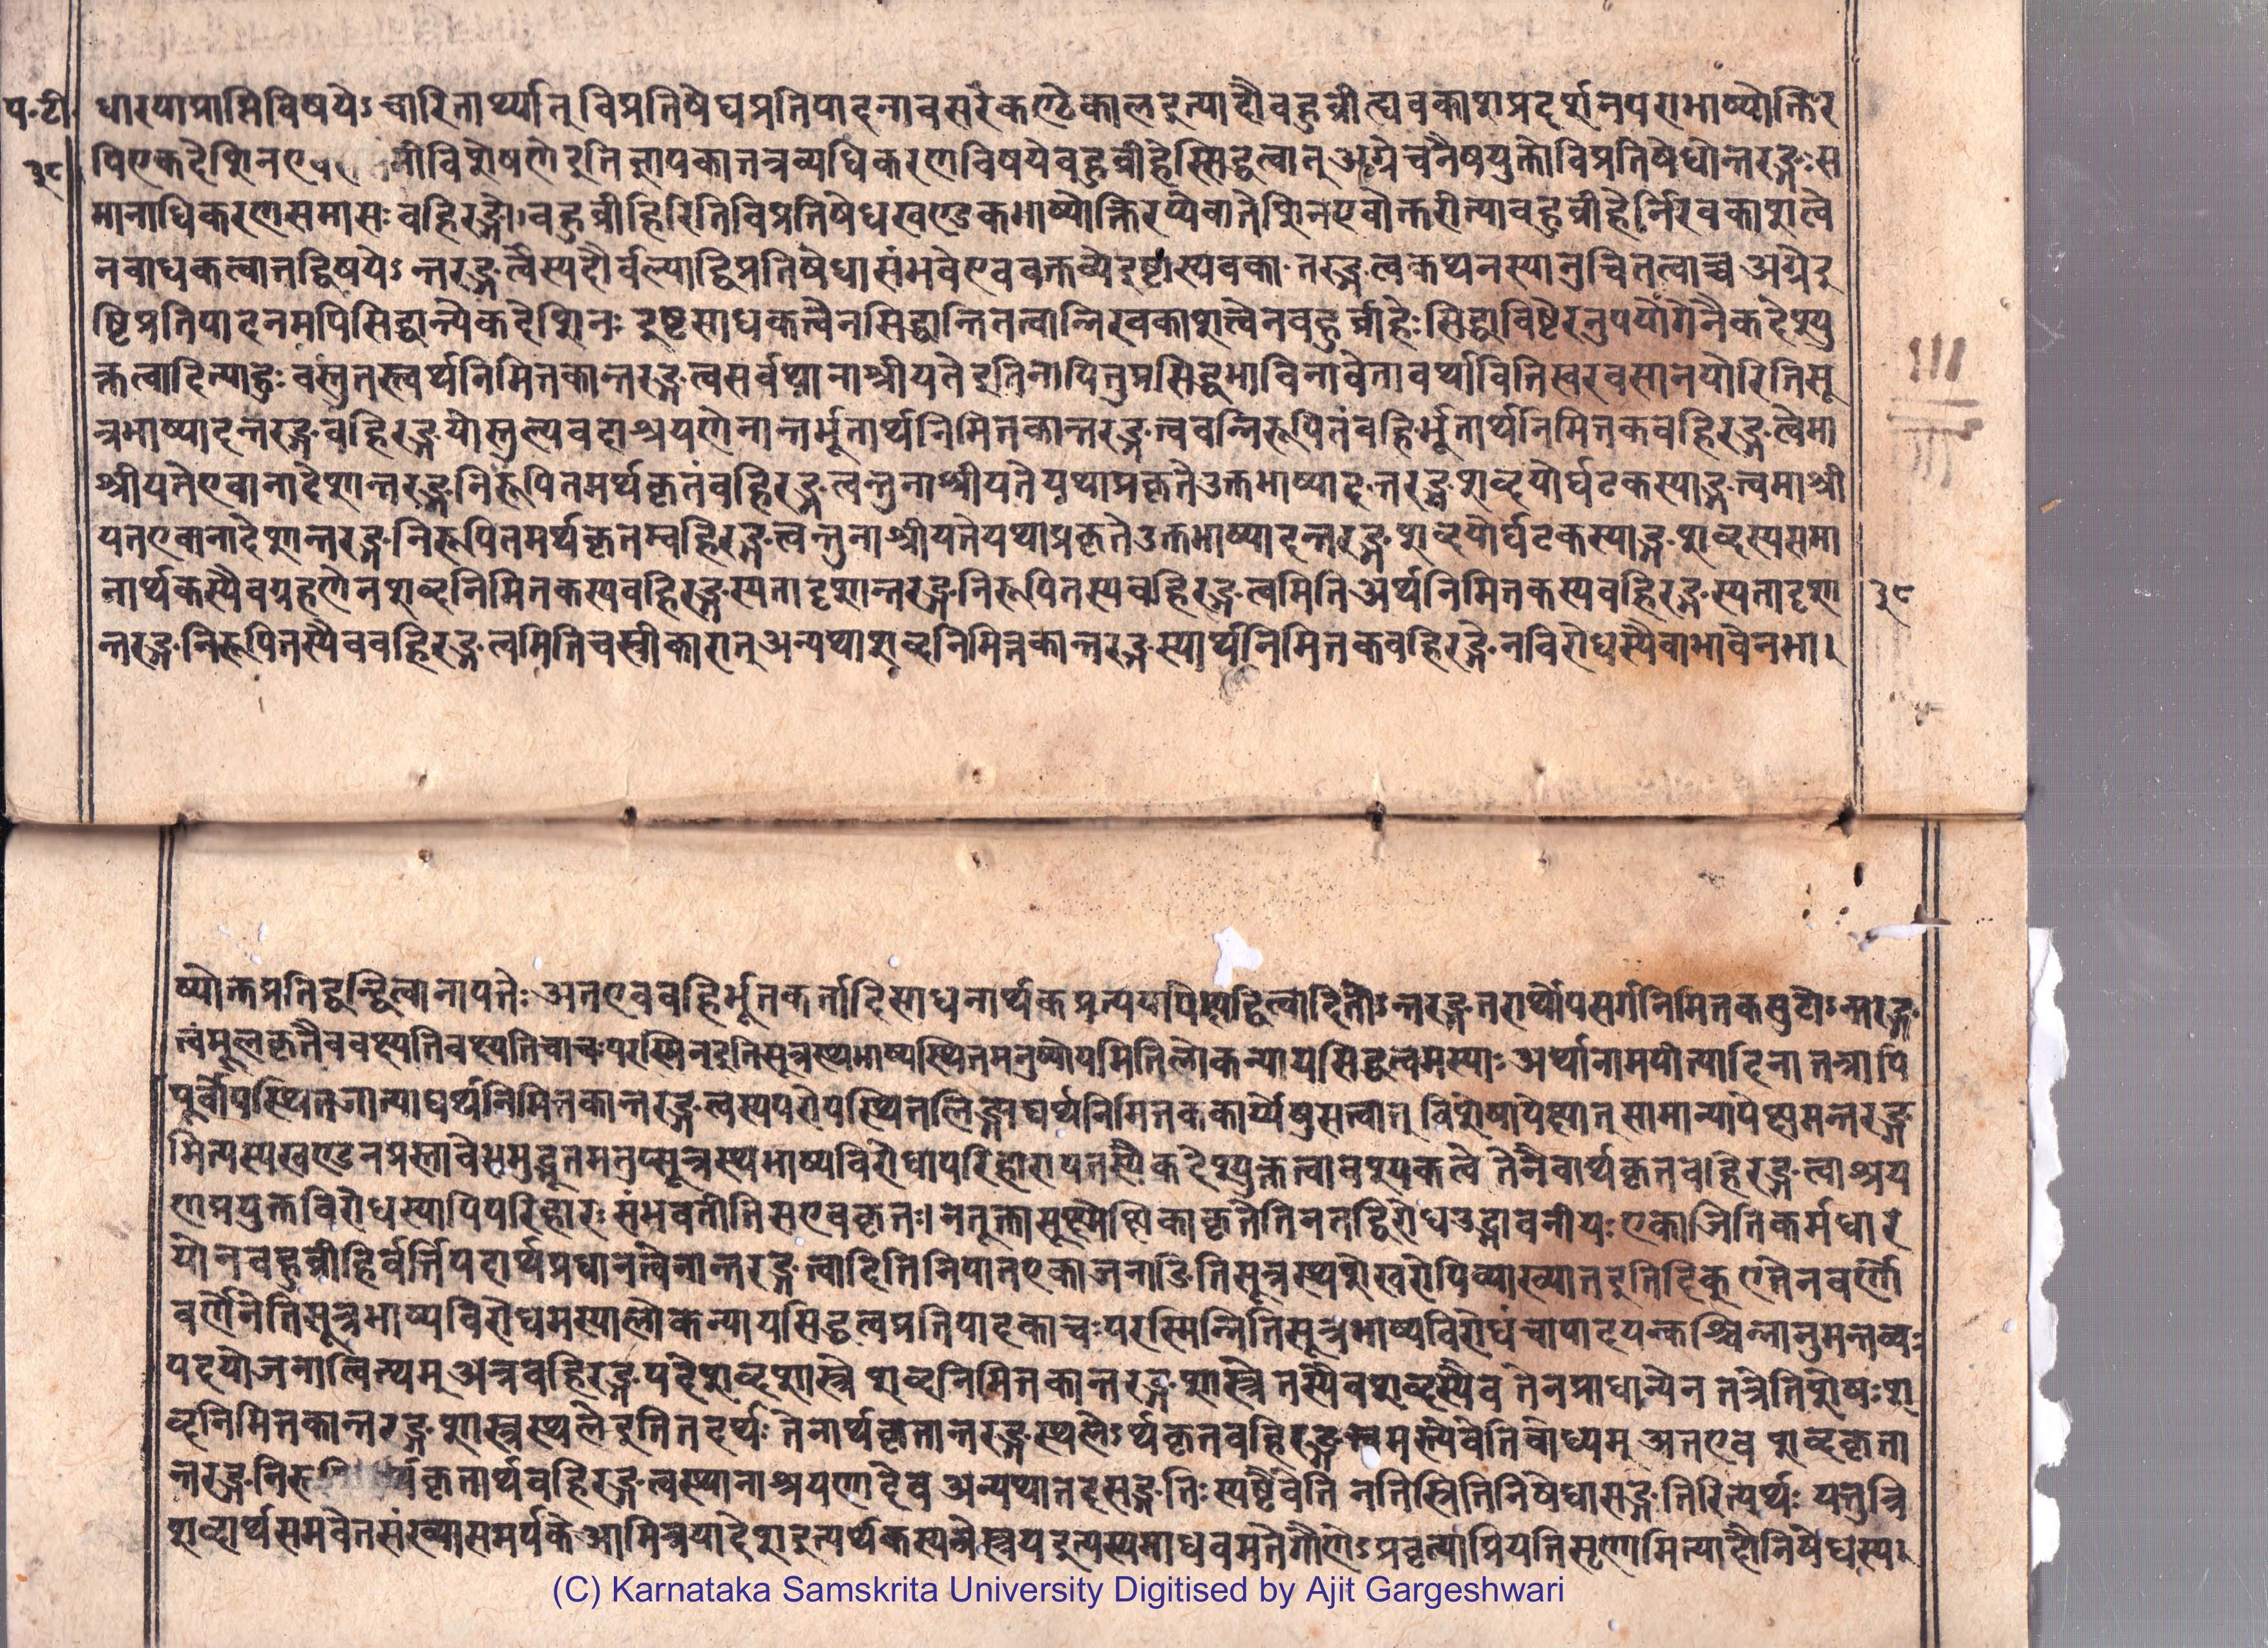 प॰टी॰
३९
धारयाप्राप्तिविषयेऽचारितार्थ्यात् विप्रतिषेधप्रतिपादनावसरेकण्ठेकालइत्यादौबहुव्रीह्यवकाशप्रदर्शनपराभाष्योक्तिर
पिएकदेशिन विशेषणेइतिज्ञापकात्तत्रव्यधिकरणविषयेबहुव्रीहेस्सिद्धत्वात् अग्रेचनैषयुक्तोविप्रतिषेधोन्तरङ्गःस
मानाधिकरणसमासःबहिरङ्गोबहुव्रीहिरितिविप्रतिषेधखण्डकभाष्योक्तिरप्येकदेशिनएवोक्तरीत्याबहुव्रीहेर्निरवकाशत्वे
नबाधकत्वात्तद्विषयेऽन्तरङ्गत्वेस्यदौर्बल्याद्विप्रतिषेधासंभवेएववक्तव्येइष्टास्यवका तरङ्गत्वकथनस्यानुचितत्वाच्च अग्रेइ
ष्टिप्रतिपादनमपिसिद्धान्त्येकदेशिनः इष्टसाधकत्वेनसिद्धान्तितत्वान्निरवकाशत्वेनबहुव्रीहेःसिद्धाविष्टेरनुपयोगेनैकदेश्यु
क्तत्वादित्याहुः वस्तुतस्त्वर्थनिमित्तकान्तरङ्गत्वसर्वथानाश्रीयतेइतिनापितुप्रसिद्धभाविनावेतावर्थावितिखरवसानयोरितिसू
त्रभाष्यादन्तरङ्गबहिरङ्गयोस्तुल्यवदाश्रयणेनान्तर्भूतार्थनिमित्तकान्तरङ्गत्ववन्निरूपितंबहिर्भूतार्थनिमित्तकबहिरङ्गत्वेमा
श्रीयतेएवानादेशान्तरङ्गनिरूपितमर्थकृतंबहिरङ्गत्वन्तुनाश्रीयतेयथाप्रकृतेउक्तभाष्यादन्तरङ्गशब्दयोर्घटकस्याङ्गत्त्वमाश्री
यतएवानादेशान्तरङ्गनिरूपितमर्थकृतम्बहिरङ्गत्वन्तुनाश्रीयतेयथाप्रकृतेउक्तभाष्यादन्तरङ्गशब्दयोर्घटकस्याङ्गशब्दस्यसमा
नार्थकस्यैवग्रहणेनशब्दनिमित्तकस्यबहिरङ्गस्यतादृशान्तरङ्गनिरूपितस्यबहिरङ्गत्वमिति अर्थनिमित्तकस्यबहिरङ्गस्यतादृशा
३९
न्तरङ्गनिरूपितस्यैवबहिरङ्गत्वमितिचस्वीकारात् अन्यथाशब्दनिमित्तकान्तरङ्गस्यार्थनिमित्तकबहिरङ्गेनविरोधस्यैवाभावेनभा।
ष्योक्तप्रतिद्वन्द्वित्वानापत्तेः अतएवबहिर्भूतकर्त्तादिसाधनार्थकप्रत्ययापेक्षाद्वित्वादितोऽन्तरङ्गतरार्थोपसर्गनिमित्तकसुटोऽन्तरङ्ग
त्वंमूलकृतैववक्ष्यतिवक्ष्यतिचाचःपरस्मिन्इतिसूत्रस्थभाष्यस्थितमनुष्योयमितिलोकन्यायसिद्धत्वमस्याः अर्थानामपीत्यादिना तत्रापि
पूर्वोपस्थितजात्याद्यर्थनिमित्तकान्तरङ्गत्वस्यपरोपस्थितलिङ्गाद्यर्थनिमित्तककार्य्येषुसत्त्वात् विशेषापेक्षात् सामान्यापेक्षमन्तरङ्ग
मित्यस्यखण्डनप्रस्तावेभमुद्धृतमतुप्सूत्रस्थभाष्यविरोधापरिहारापत्तस्यैकदेश्युक्तत्वावश्यकत्वे तेनैवार्थकृतबहिरङ्गत्वाश्रय
णप्रयुक्तविरोधस्यापिपरिहारः संभवतीतिसएवकृतः। नतूक्तासूक्ष्मेक्षिकाकृतेतिनतद्विरोधउद्भावनीयः एकाजितिकर्मधार
योनबहुव्रीहिर्वर्त्तिपदार्थप्रधानत्वेनान्तरङ्गत्वादितिनिपातएकाजनाङितिसूत्रस्थशेखरोपिव्याख्यातइतिदिक् एतेनवर्णो
वर्णेनेतिसूत्रभाष्यविरोधमस्यालोकन्यायसिद्धत्वप्रतिपादकाचःपरस्मिन्नितिसूत्रभाष्यविरोधंचापादयन्कश्चिन्नानुमन्तव्यः
पदयोजनात्वित्थम् अत्रबहिरङ्गपदेशब्दशास्त्रे शब्दनिमित्तकान्तरङ्गशास्त्रे तस्यैवशब्दस्यैव तेनप्राधान्येन तत्रेतिशेषःश
ब्दनिमित्तकान्तरङ्गशास्त्रस्थलेइतितदर्थः तेनार्थकृतान्तरङ्गस्थलेऽर्थकृतबहिरङ्गत्वमस्त्येवेतिबोध्यम् अतएव शब्दकृता
न्तरङ्गनिरू र्थकृतार्थबहिरङ्गत्वस्यानाश्रयणादेव अन्यथातदसङ्गतिः स्पष्टैवेति नतिस्रितिनिषेधासङ्गतिरित्यर्थः यत्तुत्रि
शब्दार्थसमवेतसंख्यासमर्पकेआमित्रयादेशइत्यर्थकस्यत्रेस्त्रयइत्यस्यमाधवमतेगौणेऽप्रवृत्त्याप्रियतिसृणामित्यादौनिषेधस्य।
(C) Karnataka Samskrita University Digitised by Ajit Gargeshwari